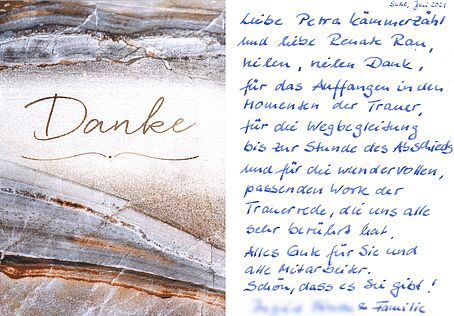 Danke
Suhl, Juni 2021
Liebe Petra Kämmerzähl
und liebe Renate Rau,
vielen, vielen Dank,
für das Auffangen in den
Momenten der Trauer,
für die Wegbegleitung
bis zur Stunde des Abschieds
und für die wundervollen,
passenden Worte der
Trauerrede, die uns alle
sehr berührt hat.
Alles Gute für Sie und
alle Mitarbeiter.
Schön, dass es Sie gibt!
& Familie